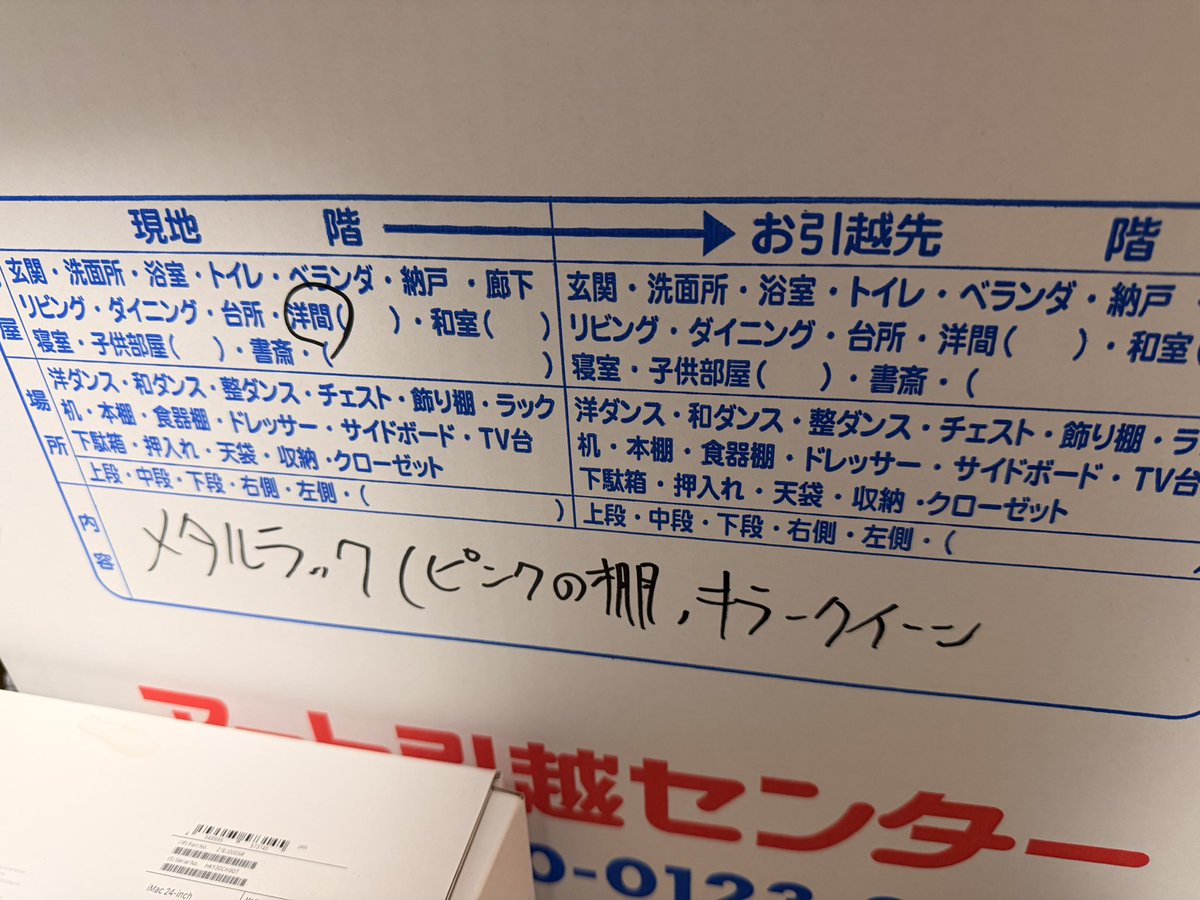 現地 階 → お引越先 階
屋
玄関・洗面所・浴室・トイレ・ベランダ・納戸・廊下
リビング・ダイニング・台所・洋間( )・和室( )
寝室・子供部屋( )・書斎・( )
玄関・洗面所・浴室・トイレ・ベランダ・納戸・
リビング・ダイニング・台所・洋間( )・和室(
寝室・子供部屋( )・書斎・(
場所
洋ダンス・和ダンス・整ダンス・チェスト・飾り棚・ラック
机・本棚・食器棚・ドレッサー・サイドボード・TV台
下駄箱・押入れ・天袋・収納・クローゼット
上段・中段・下段・右側・左側・( )
洋ダンス・和ダンス・整ダンス・チェスト・飾り棚・ラ
机・本棚・食器棚・ドレッサー・サイドボード・TV台
下駄箱・押入れ・天袋・収納・クローゼット
上段・中段・下段・右側・左側・( )
内容
メタルラック(ピンクの棚,キラークイーン
アート引越センター
0-0123-
JAN
(P) Part No.
(S) Serial No.
iMac 24-inch